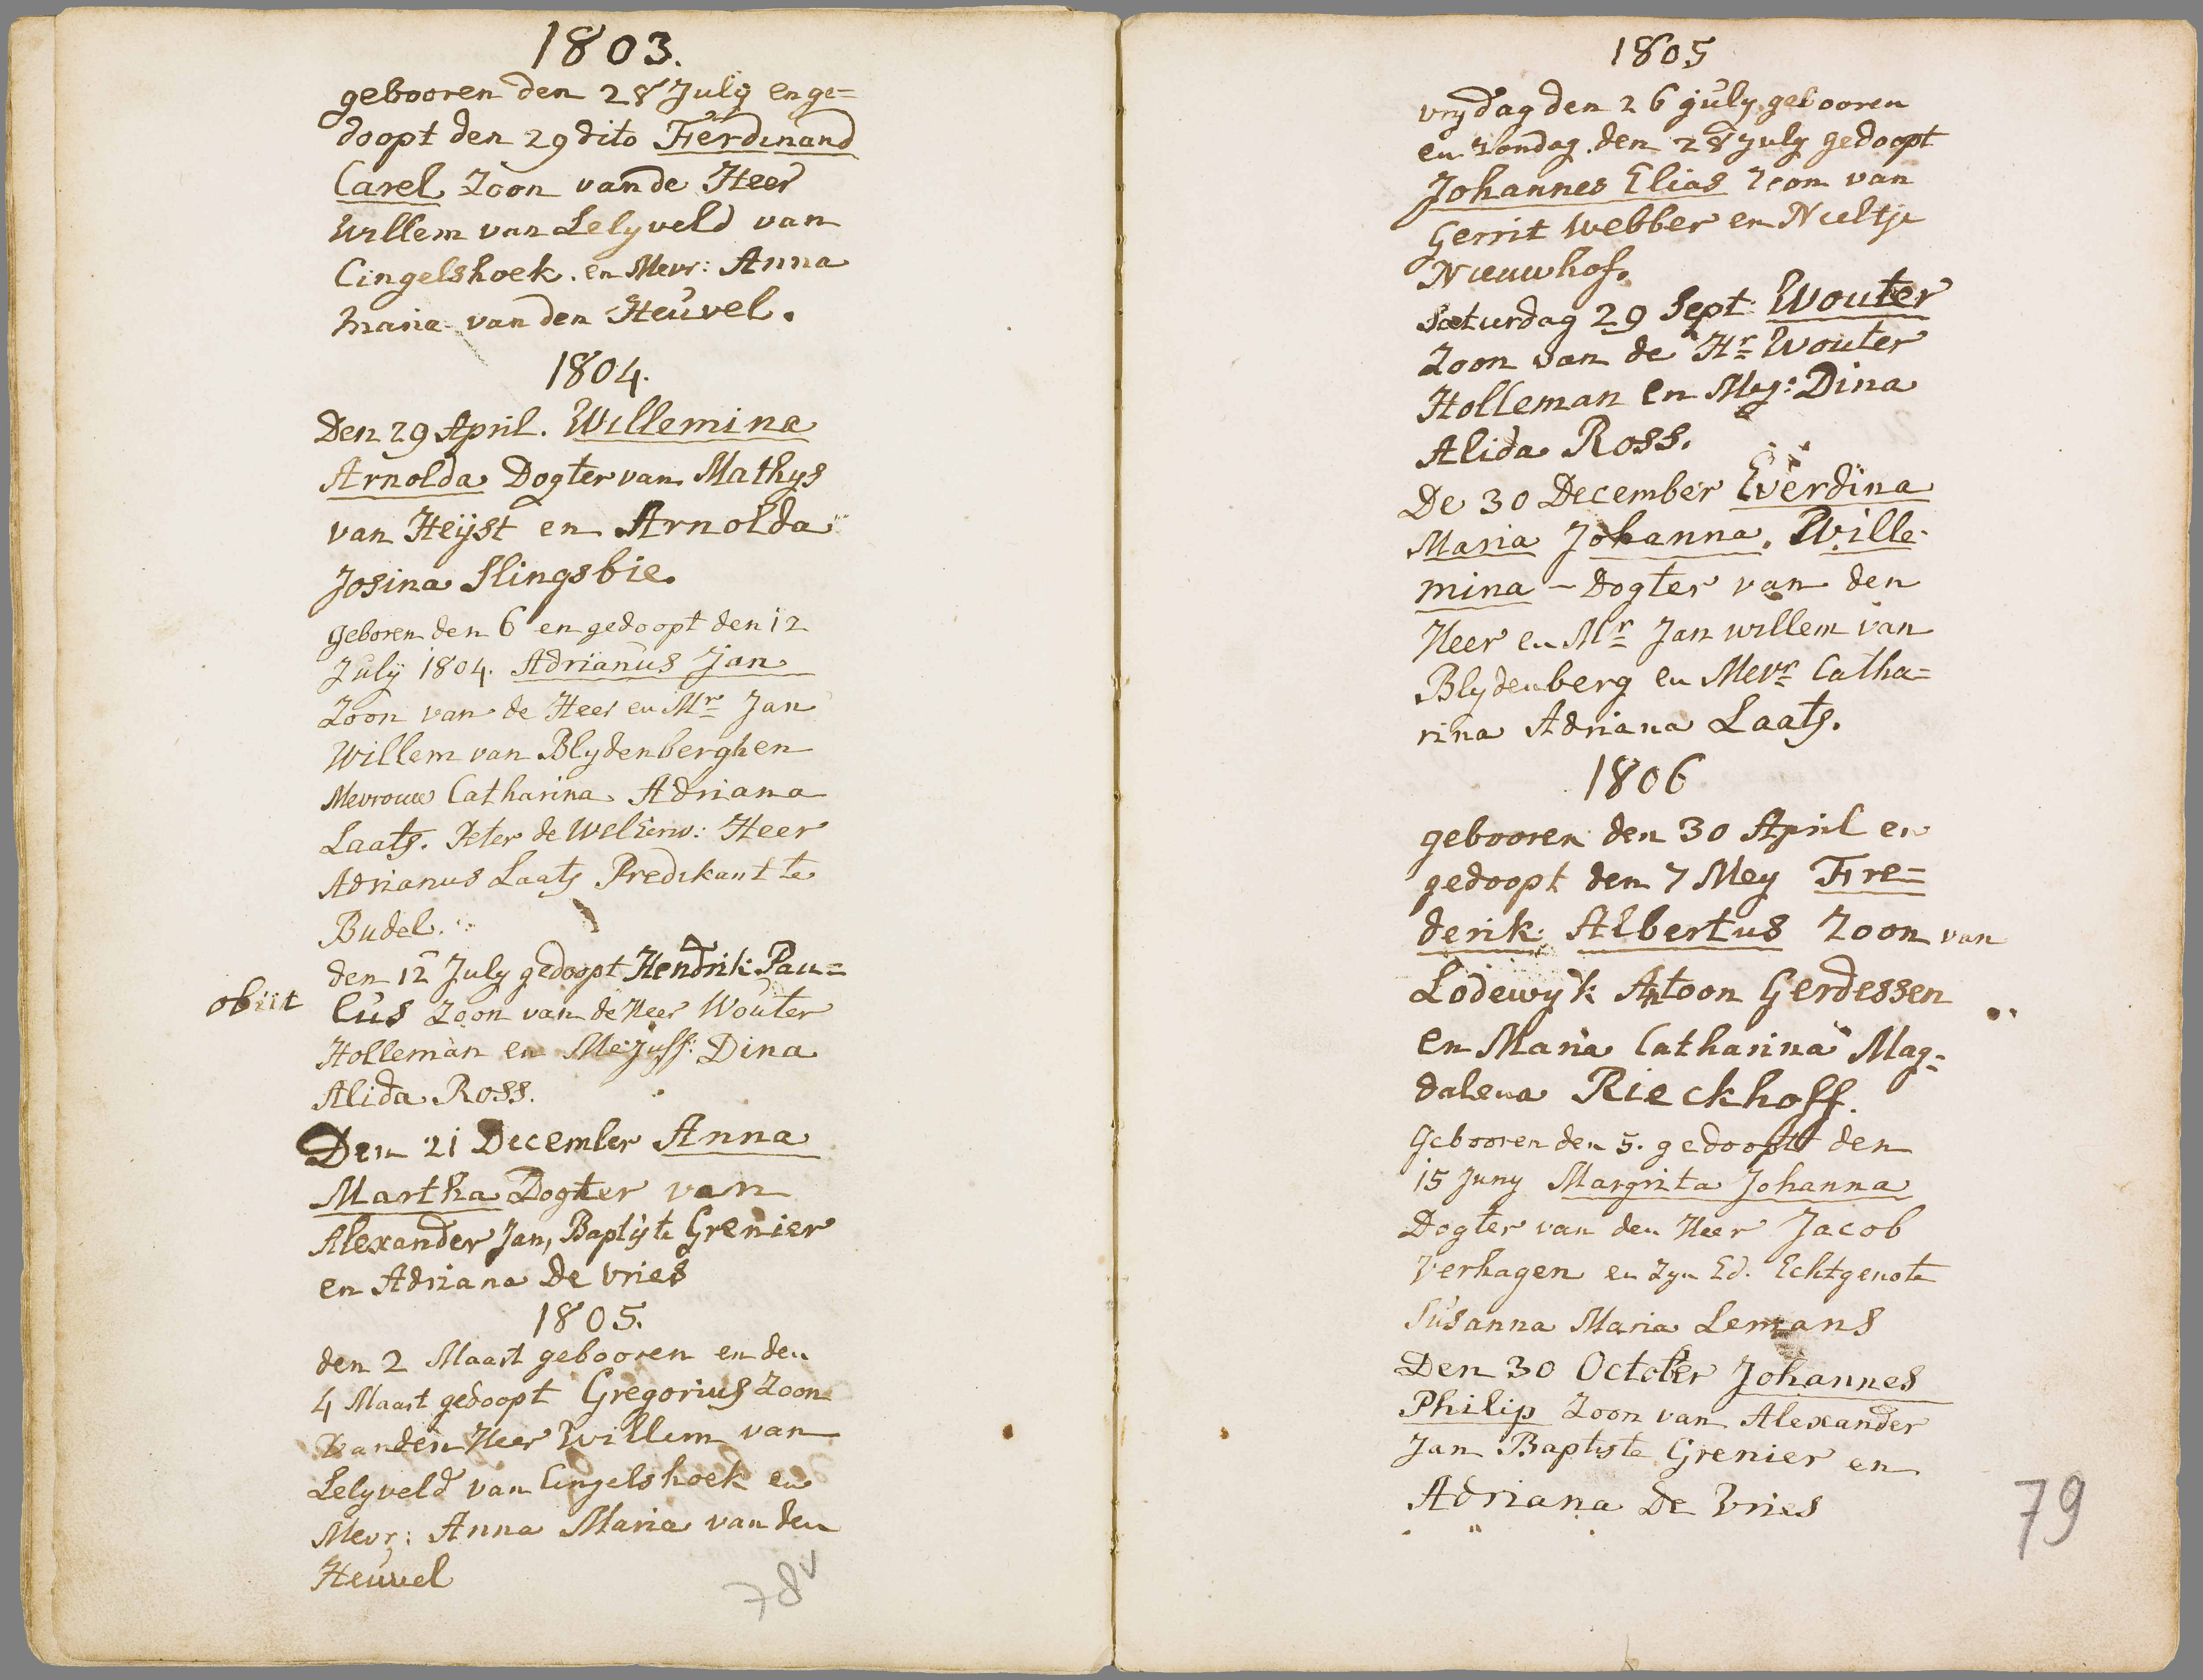 1803.
gebooren den 28 July en ge=
doopt den 29 dito Ferdinand
Carel Zoon van de Heer
Willem van Lelyveld van
Cingelshoek. en Mevr: Anna
Maria van den Heuvel.
1804.
Den 29 April. Willemina
Arnolda Dogter van Mathys
van Heÿst en Arnolda
Josina Slingsbie.
Geboren den 6 en gedoopt den 12
July 1804. Adrianus Jan
Zoon van de Heer en Mr Jan
Willem van Blydenberghen
Mevrouw Catharina Adriana
Laats. Peter de WelEerw: Heer
Adrianus Laats Predikant te
Budel.
den 12 July gedoopt Hendrik Pau=
obiit lus Zoon van de Heer Wouter
Holleman en Mejuff: Dina
Alida Ross.
Den 21 December Anna
Martha Dogter van
Alexander Jan, Baptiste Grenier
en Adriana De Vries
1805.
den 2 Maart gebooren en den
4 Maart gedoopt Gregorius Zoon
van den Heer Willem van
Lelyveld van Cingelshoek en
Mevr: Anna Maria van den
Heuvel
78v
1805
vrydag den 26 july gebooren
en zondag den 28 July gedoopt
Johannes Elias Zoon van
Gerrit Webber en Neeltje
Nieuwhof.
Saturdag 29 Sept Wouter
Zoon van de Hr Wouter
Holleman en Mej: Dina
Alida Ross.
De 30 December Everdina
Maria Johanna, Wille-
mina - Dogter van den
Heer en Mr Jan willem van
Blydenberg en Mevr Catha=
rina Adriana Laats.
1806
gebooren den 30 April en
gedoopt den 7 Mey Fre=
derik Albertus Zoon van
Lodewyk Antoon Gerdessen
en Maria Catharina Mag=
dalena Rieckhoff.
Gebooren den 5. gedoopt den
15 Juny Margrita Johanna
Dogter van den Heer Jacob
Verhagen en Zyn Ed. Echtgenote
Susanna Maria Lemans
Den 30 October Johannes
Philip Zoon van Alexander
Jan Baptiste Grenier en
Adriana De Vries
79